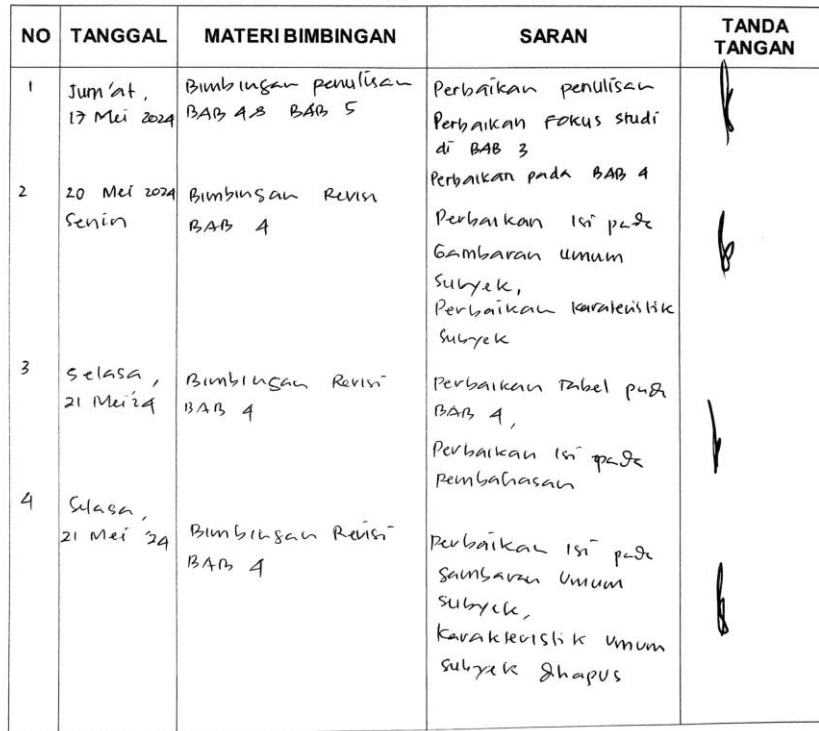 NO TANGGAL MATERI BIMBINGAN SARAN TANDA TANGAN
1 Jum'at, 17 Mei 2024
Bimbingan penulisan
BAB 4 & BAB 5
Perbaikan penulisan
Perbaikan Fokus studi
di BAB 3
Perbaikan pada BAB 4
2 20 Mei 2024
Senin
Bimbingan Revisi
BAB 4
Perbaikan Isi pada
Gambaran umum
Subyek,
Perbaikan karateristik
Subyek
3 Selasa,
21 Mei '24
Bimbingan Revisi
BAB 4
Perbaikan Tabel pada
BAB 4,
Perbaikan Isi pada
pembahasan
4 Selasa,
21 Mei '24
Bimbingan Revisi
BAB 4
Perbaikan Isi pada
Gambaran Umum
Subyek,
Karakteristik Umum
Subyek dihapus